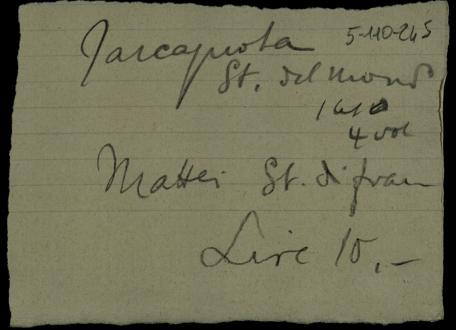 Tarcagnota 5-110-245
St. del mondo
1610
4 vol
Mattei St. di fran
Lire 10,-